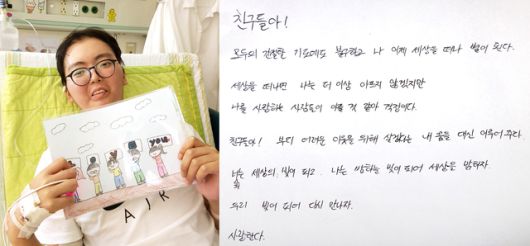 친구들아!
모두의 간절한 기도에도 불구하고 나 이제 세상을 떠나 별이 된다.
세상을 떠나면 나는 더 이상 아프지 않겠지만
나를 사랑하는 사람들이 아플 것 같아 걱정이다.
친구들아! 부디 어려운 이웃을 위해 살겠다는 내 꿈을 대신 이루어 주라.
너는 세상의 빛이 되고 나는 밤하늘 빛이 되어 세상을 밝히자.
우리 빛이 되어 다시 만나자.
사랑한다.
YOU
AJR